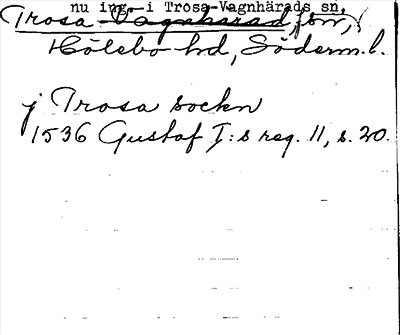 nu ing. i Trosa-Vagnhärads sn.
Trosa-Vagnhärad, förv,
Hölebo hd, Söderm. l.
j Trosa sockn
1536 Gustaf I:s reg. 11, s. 20.